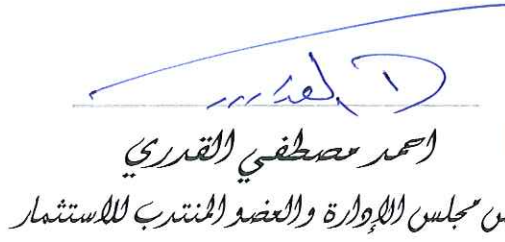 احمد مصطفي القدري
مجلس الإدارة والعضو المنتدب للاستثمار